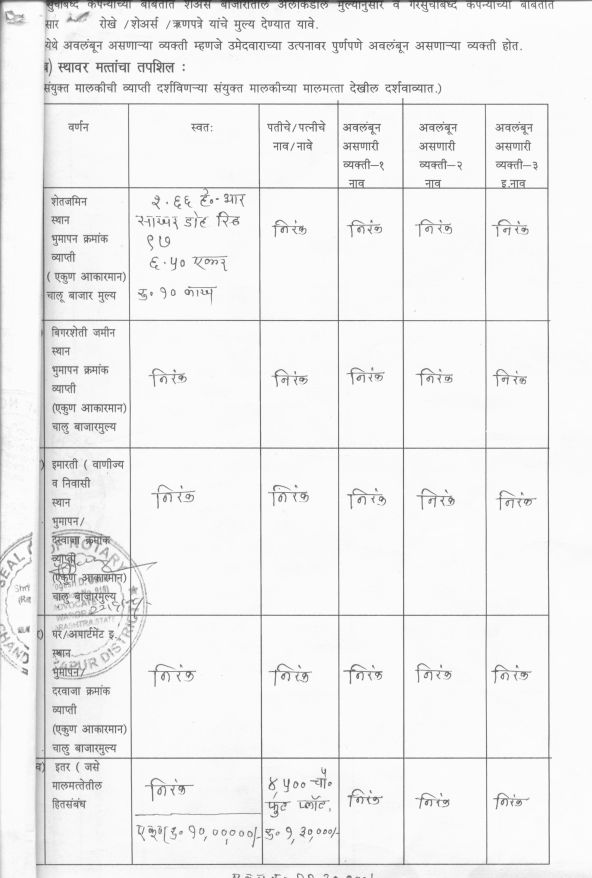 सुचीबध्द कंपन्यांच्या बाबतीत शेअर्स बाजारातील अलीकडील मुल्यानुसार व गैरसुचीबध्द कंपन्यांच्या बाबतीत
सार रोखे /शेअर्स /ऋणपत्रे यांचे मुल्य देण्यात यावे.
येथे अवलंबून असणाऱ्या व्यक्ती म्हणजे उमेदवाराच्या उत्पनावर पुर्णपणे अवलंबून असणाऱ्या व्यक्ती होत.
ब) स्थावर मत्तांचा तपशिल :
संयुक्त मालकीची व्याप्ती दर्शविणऱ्या संयुक्त मालकीच्या मालमत्ता देखील दर्शवाव्यात.)
वर्णन स्वत: पतीचे/पत्नीचे नाव/नावे अवलंबून असणारी व्यक्ती-१ नाव अवलंबून असणारी व्यक्ती-२ नाव अवलंबून असणारी व्यक्ती-३ इ.नाव
शेतजमिन
स्थान
भुमापन क्रमांक
व्याप्ती
( एकुण आकारमान)
चालू बाजार मुल्य
२.६६ हे.आर
९७
६.५० एकर
रु. १० लाख
निरंक निरंक निरंक निरंक
बिगरशेती जमीन
स्थान
भुमापन क्रमांक
व्याप्ती
(एकुण आकारमान)
चालु बाजारमुल्य
निरंक निरंक निरंक निरंक निरंक
इमारती ( वाणीज्य
व निवासी
स्थान
भुमापन/
दरवाजा क्रमांक
व्याप्ती
(एकुण आकारमान)
चालु बाजारमुल्य
निरंक निरंक निरंक निरंक निरंक
SEAL OF NOTARY
ADVOCATE
CHANDRAPUR DISTRICT
घरे/अपार्टमेंट इ.
स्थान
भुमापन/
दरवाजा क्रमांक
व्याप्ती
(एकुण आकारमान)
चालु बाजारमुल्य
निरंक निरंक निरंक निरंक निरंक
इतर ( जसे
मालमत्तेतील
हितसंबंध
निरंक
एकूण रु. १०,००,०००/-
४५०० चौ.
फुट प्लॉट.
रु. १,३०,०००/-
निरंक निरंक निरंक